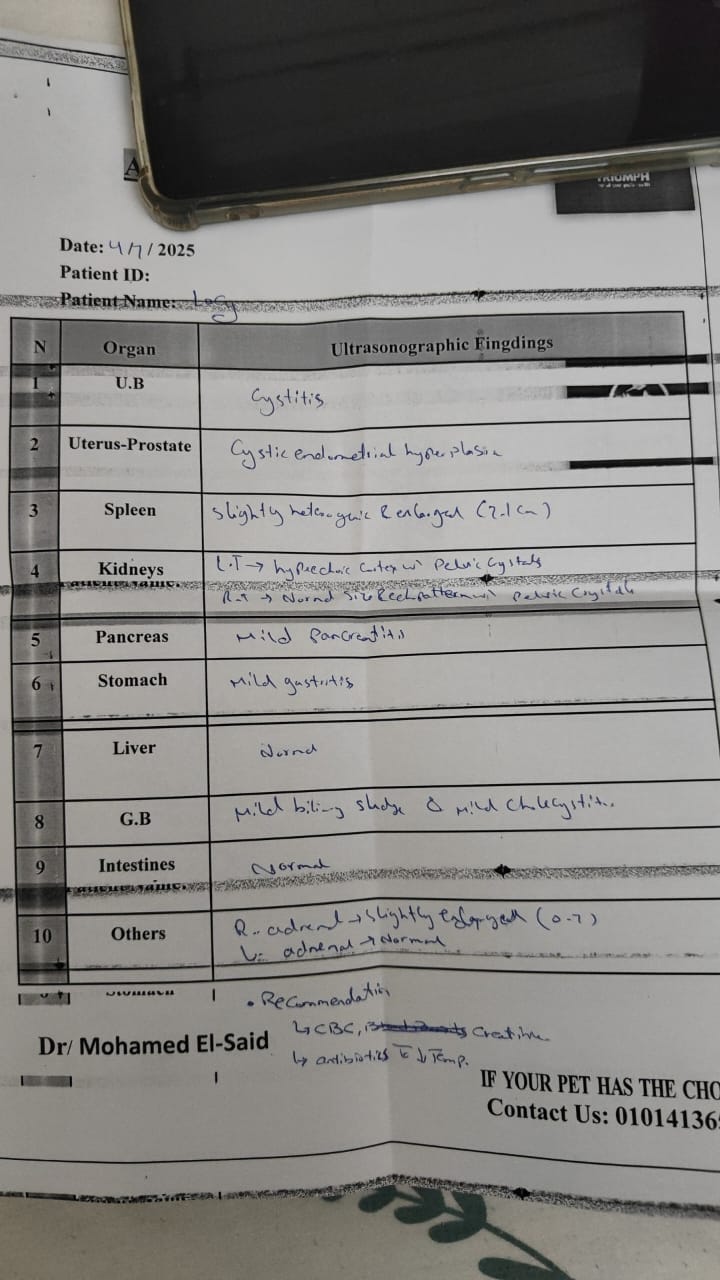 A
TRIUMPH
Date: 4/7/2025
Patient ID:
Patient Name: Logy
N Organ Ultrasonographic Fingdings
1 U.B Cystitis
2 Uterus-Prostate Cystic endometrial hyperplasia
3 Spleen slightly & enlarged
4 Kidneys L.T → cortex w/ Pelvic Crystals
R.T → Normal Size & Echpattern w/ pelvic Crystals
5 Pancreas Mild Pancreatitis
6 Stomach Mild gastritis
7 Liver Normal
8 G.B Mild biliary sludge & Mild Cholecystitis
9 Intestines Normal
10 Others R.. adrenal → slightly enlarged (0.7)
L.. adrenal → Normal
Stomach
• Recommendation
↳ CBC, Creatinine
↳ antibiotics ↓ Temp.
Dr/ Mohamed El-Said
IF YOUR PET HAS THE CHO
Contact Us: 01014136